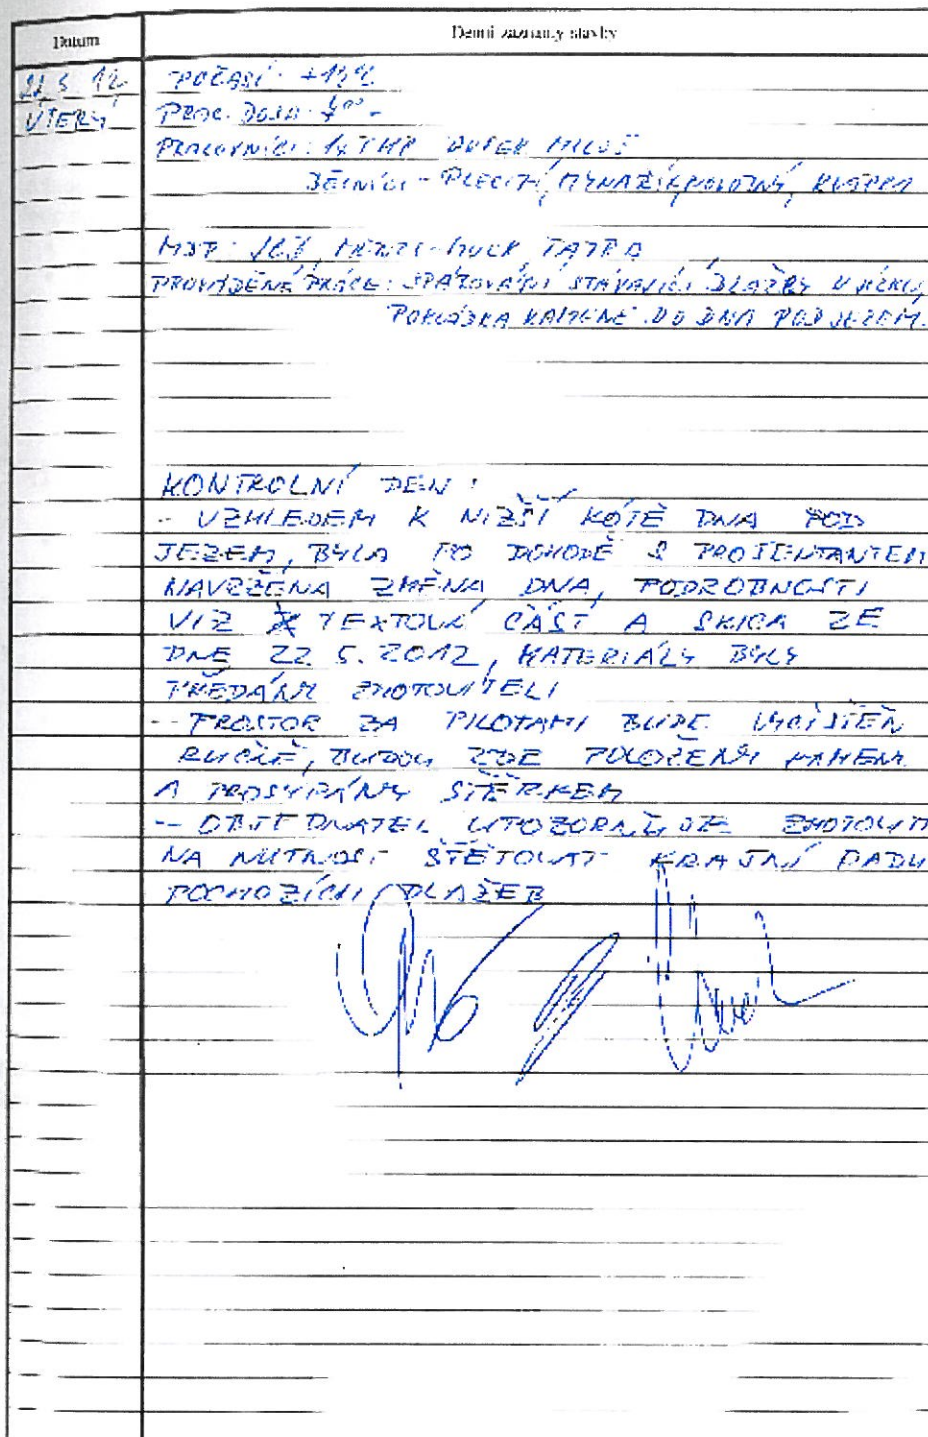 Datum
Denní záznamy stavby
22 5 12
ÚTERÝ
POČASÍ: +13°C
PRAC. DOBA: 7⁰⁰ -
PRACOVNÍCI: 1x THP MILOŠ
DĚLNÍCI - PLECITÝ,
MJP: JCB, MENZI-MUCK, TATRA
PROVÁDĚNÉ PRÁCE: SPÁROVÁNÍ STÁVAJÍCÍ DLAŽBY
POKLÁDKA KAMENE DO DNA POD JEZEM.
KONTROLNÍ DEN:
- VZHLEDEM K NIŽŠÍ KÓTĚ DNA POD
JEZEM, BYLA PO DOHODĚ S PROJEKTANTEM
NAVRŽENA ZMĚNA DNA, PODROBNOSTI
VIZ TEXTOVÁ ČÁST A SKICA ZE
DNE 22 5. 2012, MATERIÁLY BYLY
PŘEDÁNY ZHOTOVITELI
- PROSTOR ZA PILOTAMI BUDE VYČIŠTĚN
RUČNĚ, BUDOU ZDE POLOŽENY KAMENY
A PROSYPÁNY ŠTĚRKEM
- OBJEDNATEL UPOZORNIL ZHOTOVIT
NA NUTNOST ŠTĚTOVAT KRAJNÍ ŘADU
POCHOZÍCH DLAŽEB